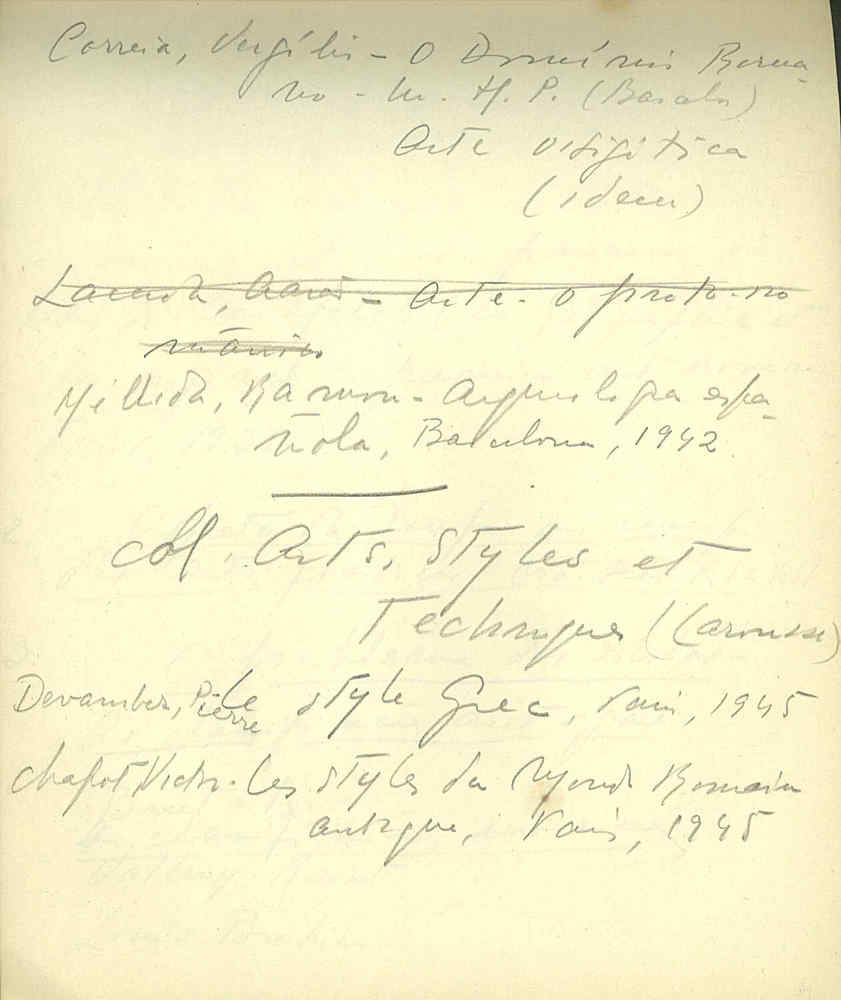 Correia, Vergílio - O Domínio Roma-
no - In. H. P. (Barcelos)
Arte visigótica
(idem)
Lacerda, Aarão - Arte - O proto-ro
mânico
Mélida, Ramon - Arqueologia espa-
ñola, Barcelona, 1942
Col. Arts, Styles et
Techniques (Larousse)
Devambez, Pierre Le style Grec, Paris, 1945
Chapot, Victor - Les styles du Monde Romain
antique, Paris, 1945